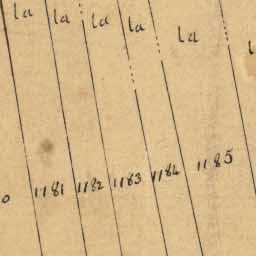 la la la la la
1181 1182 1183 1184 1185